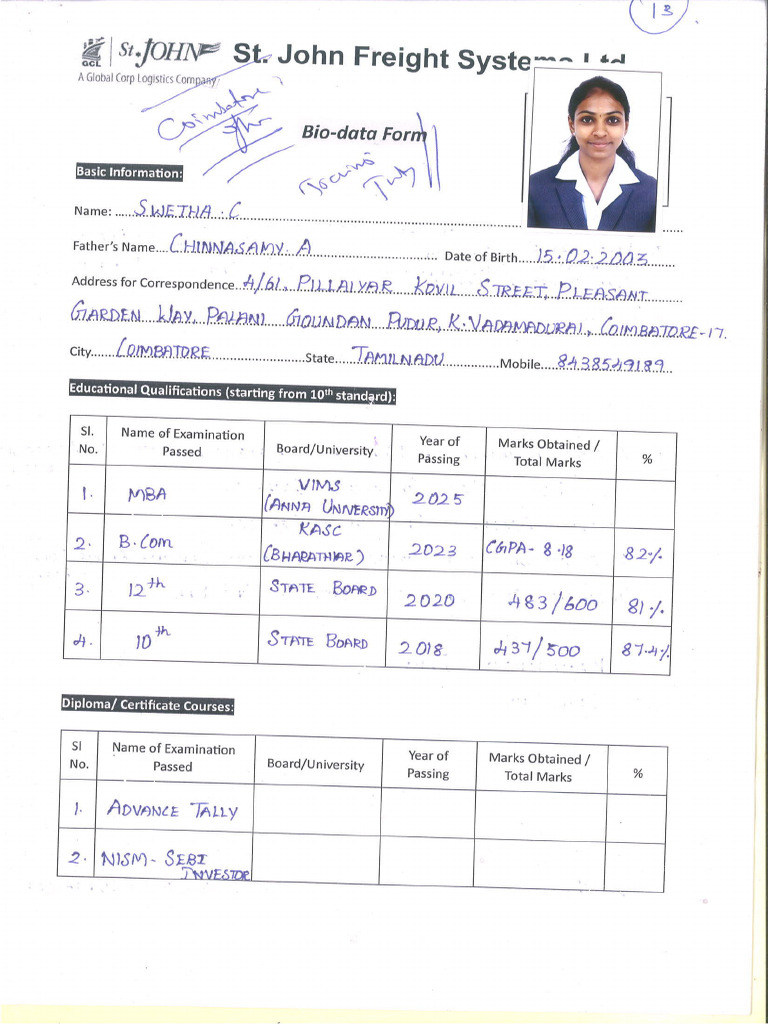 13
St. JOHN St. John Freight Systems Ltd
GCL
A Global Corp Logistics Company
Coimbatore
Bio-data Form
Basic Information:
Name: SWETHA. C
Father's Name CHINNASAMY. A Date of Birth 15.02.2003
Address for Correspondence 4/61, PILLAIYAR KOVIL STREET, PLEASANT
GARDEN WAY, PALANI GOUNDAN PUDUR, K. VADAMADURAI, COIMBATORE-17.
City COIMBATORE State TAMILNADU Mobile 8438549189
Educational Qualifications (starting from 10th standard):
Sl. No. Name of Examination Passed Board/University Year of Passing Marks Obtained / Total Marks %
1. MBA VIMS (ANNA UNIVERSITY) 2025
2. B.Com KASC (BHARATHIAR) 2023 CGPA - 8.18 82.%
3. 12th STATE BOARD 2020 483/600 81.%
4. 10th STATE BOARD 2018 437/500 87.4%
Diploma/ Certificate Courses:
Sl No. Name of Examination Passed Board/University Year of Passing Marks Obtained / Total Marks %
1. ADVANCE TALLY
2. NISM - SEBI INVESTOR